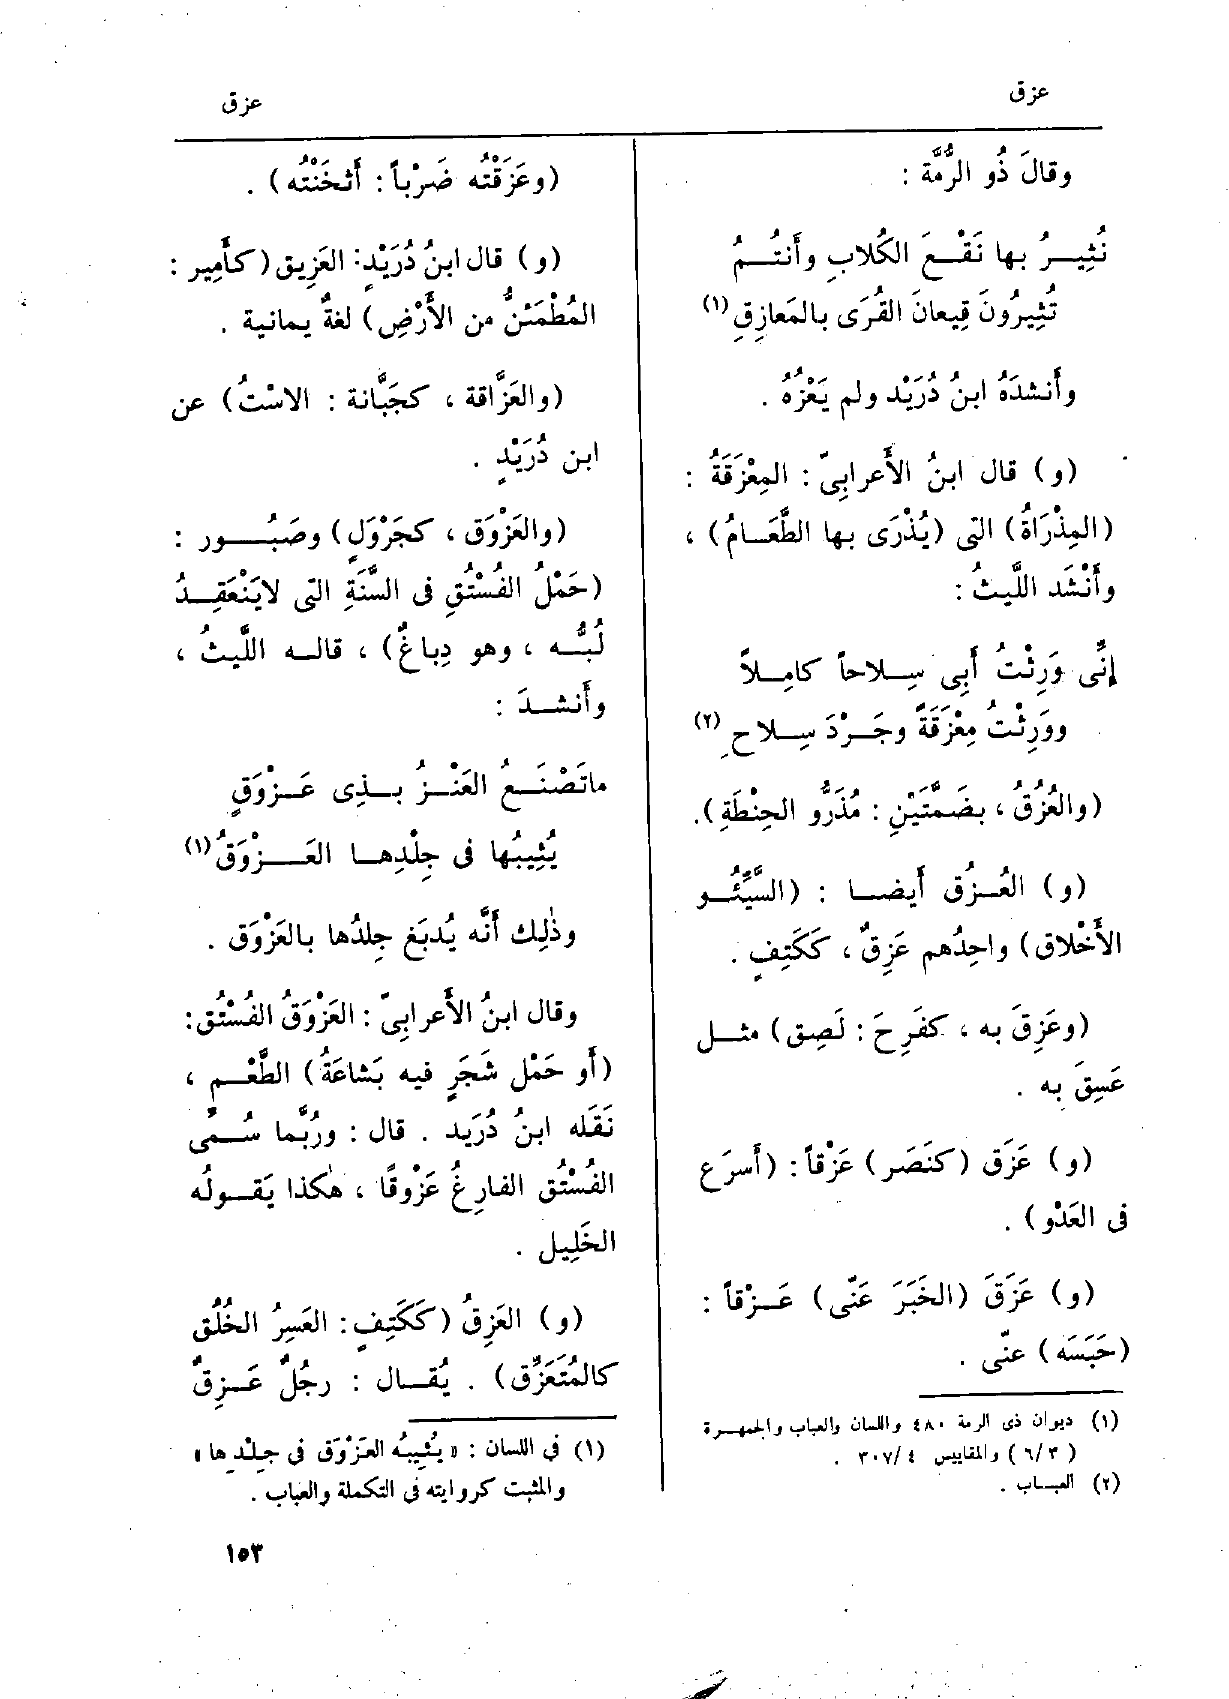 عزق
عزق
وقالَ ذُو الرُّمَّة :
نُثِيــرُ بها نَقْــعَ الكُلابِ وأَنتُــمُ
تُثِيرُونَ قِيعانَ القُرَى بالمَعازِقِ (١)
وأَنشدَهُ ابنُ دُرَيْد ولم يَعْزُهُ .
(و) قال ابنُ الأَعرابِىّ : المِعْزَقَةُ :
(المِذْرَاةُ) التى (يُذْرَى بها الطَّعَــامُ) ،
وأَنْشَد اللَّيثُ :
إِنِّى وَرِثْتُ أَبِى سِــلاحاً كامِــلاً
ووَرِثْتُ مِعْزَقَةً وجَــرْدَ سِــلاحِ (٢)
(والعُزُقُ ، بضَمَّتَيْنِ : مُذَرُّو الحِنْطَةِ).
(و) العُــزُق أَيضــا : (السَّيِّئُــو
الأَخْلاق) واحِدُهم عَزِقٌ ، كَكَتِفٍ .
(وعَزِقَ به ، كفَرِحَ : لَصِق) مثــل
عَسِقَ به .
(و) عَزَق (كنَصَر) عَزْقاً : (أَسرَع
فى العَدْو) .
(و) عَزَقَ (الخَبَرَ عَنّى) عَــزْقاً :
(حَبَسَه) عنّى .
(١) ديوان ذى الرمة ٤٨٠ واللسان والعباب والجمهــرة
(٣/٦) والمقاييس ٤/٣٠٧ .
(٢) العبــاب .
(وعَزَقْتُه ضَرْباً : أَثخَنْتُه) .
(و) قال ابنُ دُرَيْدٍ: العَزِيق (كأَمِير :
المُطْمَئنُّ من الأَرْضِ) لغةٌ يمانية .
(والعَزَّاقة ، كجَبَّانة : الاسْتُ) عن
ابن دُرَيْدٍ .
(والعَزْوَق ، كجَرْوَلٍ) وصَبُــور :
(حَمْلُ الفُسْتُقِ فى السَّنَةِ التى لايَنْعَقِــدُ
لُبُّــه ، وهو دِباغٌ) ، قالــه اللَّيثُ ،
وأَنشــدَ :
ماتَصْنَــعُ العَنْــزُ بــذِى عَــزْوَقٍ
يُثِيبُها فى جِلْدِهــا العَــزْوَقُ (١)
وذٰلِك أَنَّه يُدبَغ جِلدُها بالعَزْوَق .
وقال ابنُ الأَعرابِىّ : العَزْوَقُ الفُسْتُق:
(أَو حَمْل شَجَرٍ فيه بَشاعَةُ) الطَّعْــم ،
نَقَله ابنُ دُرَيد . قال : ورُبَّما سُــمِّى
الفُسْتُق الفارِغُ عَزْوقًا ، هٰكذا يَقــولُه
الخَلِيل .
(و) العَزِقُ (كَكَتِفٍ : العَسِرُ الخُلُق
كالمُتَعَزِّق) . يُقــال : رجُلٌ عَــزِقٌ
(١) فى اللسان : « يُثِيبُه العَزْوَق فى جِلْدِها »
والمثبت كروايته فى التكملة والعباب .
١٥٣